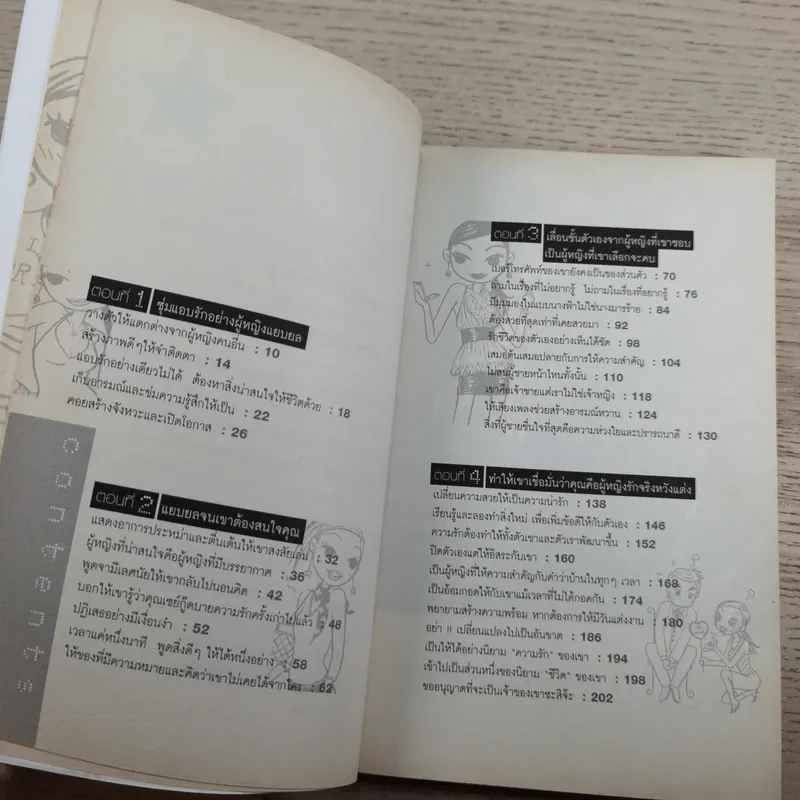 contents
ตอนที่ 1 ซุ่มแอบรักอย่างผู้หญิงแยบยล
วางตัวให้แตกต่างจากผู้หญิงคนอื่น : 10
สร้างภาพดีๆให้จำติดตา : 14
แอบรักอย่างเดียวไม่ได้ ต้องหาสิ่งน่าสนใจให้ชีวิตด้วย : 18
เก็บอารมณ์และข่มความรู้สึกให้เป็น : 22
คอยสร้างจังหวะและเปิดโอกาส : 26
ตอนที่ 2 แยบยลจนเขาต้องสนใจคุณ
แสดงอาการประหม่าและตื่นเต้นให้เขาสงสัยเล่น : 32
ผู้หญิงที่น่าสนใจคือผู้หญิงที่มีบรรยากาศ : 36
พูดจามีเลศนัยให้เขากลับไปนอนคิด : 42
บอกให้เขารู้ว่าคุณเซย์กู๊ดบายความรักครั้งเก่าไปแล้ว : 48
ปฏิเสธอย่างมีเงื่อนงำ : 52
เวลาแค่หนึ่งนาที พูดสิ่งดีๆ ให้ได้หนึ่งอย่าง : 58
ให้ของที่มีความหมายและคิดว่าเขาไม่เคยได้จากใคร : 62
ตอนที่ 3 เลื่อนขั้นตัวเองจากผู้หญิงที่เขาชอบ
เป็นผู้หญิงที่เขาเลือกจะคบ
เบอร์โทรศัพท์ของเขายังคงเป็นของส่วนตัว : 70
ถามในเรื่องที่ไม่อยากรู้ ไม่ถามในเรื่องที่อยากรู้ : 76
มีมุมมองในแบบนางฟ้าไม่ใช่นางมารร้าย : 84
ต้องสวยที่สุดเท่าที่เคยสวยมา : 92
รักชีวิตของตัวเองอย่างเห็นได้ชัด : 98
เสมอต้นเสมอปลายกับการให้ความสำคัญ : 104
ไม่สนผู้ชายหน้าไหนทั้งนั้น : 110
เขาคือเจ้าชายแต่เราไม่ใช่เจ้าหญิง : 118
ให้เสียงเพลงช่วยสร้างอารมณ์หวาน : 124
สิ่งที่ผู้ชายชื่นใจที่สุดคือความห่วงใยและปรารถนาดี : 130
ตอนที่ 4 ทำให้เขาเชื่อมั่นว่าคุณคือผู้หญิงรักจริงหวังแต่ง
เปลี่ยนความสวยให้เป็นความน่ารัก : 138
เรียนรู้และลองทำสิ่งใหม่ เพื่อเพิ่มข้อดีให้กับตัวเอง : 146
ความรักต้องทำให้ทั้งตัวเขาและตัวเราพัฒนาขึ้น : 152
ปิดตัวเองแต่ให้อิสระกับเขา : 160
เป็นผู้หญิงที่ให้ความสำคัญกับคำว่าบ้านในทุกๆ เวลา : 168
เป็นอ้อมกอดให้กับเขาแม้เวลาที่ไม่ได้กอดกัน : 174
พยายามสร้างความพร้อม หากต้องการให้มีวันแต่งงาน : 180
อย่า !! เปลี่ยนแปลงไปเป็นอันขาด : 186
เป็นให้ได้อย่างนิยาม "ความรัก" ของเขา : 194
เข้าไปเป็นส่วนหนึ่งของนิยาม "ชีวิต" ของเขา : 198
ขออนุญาตที่จะเป็นเจ้าของเขาซะสิจ๊ะ : 202